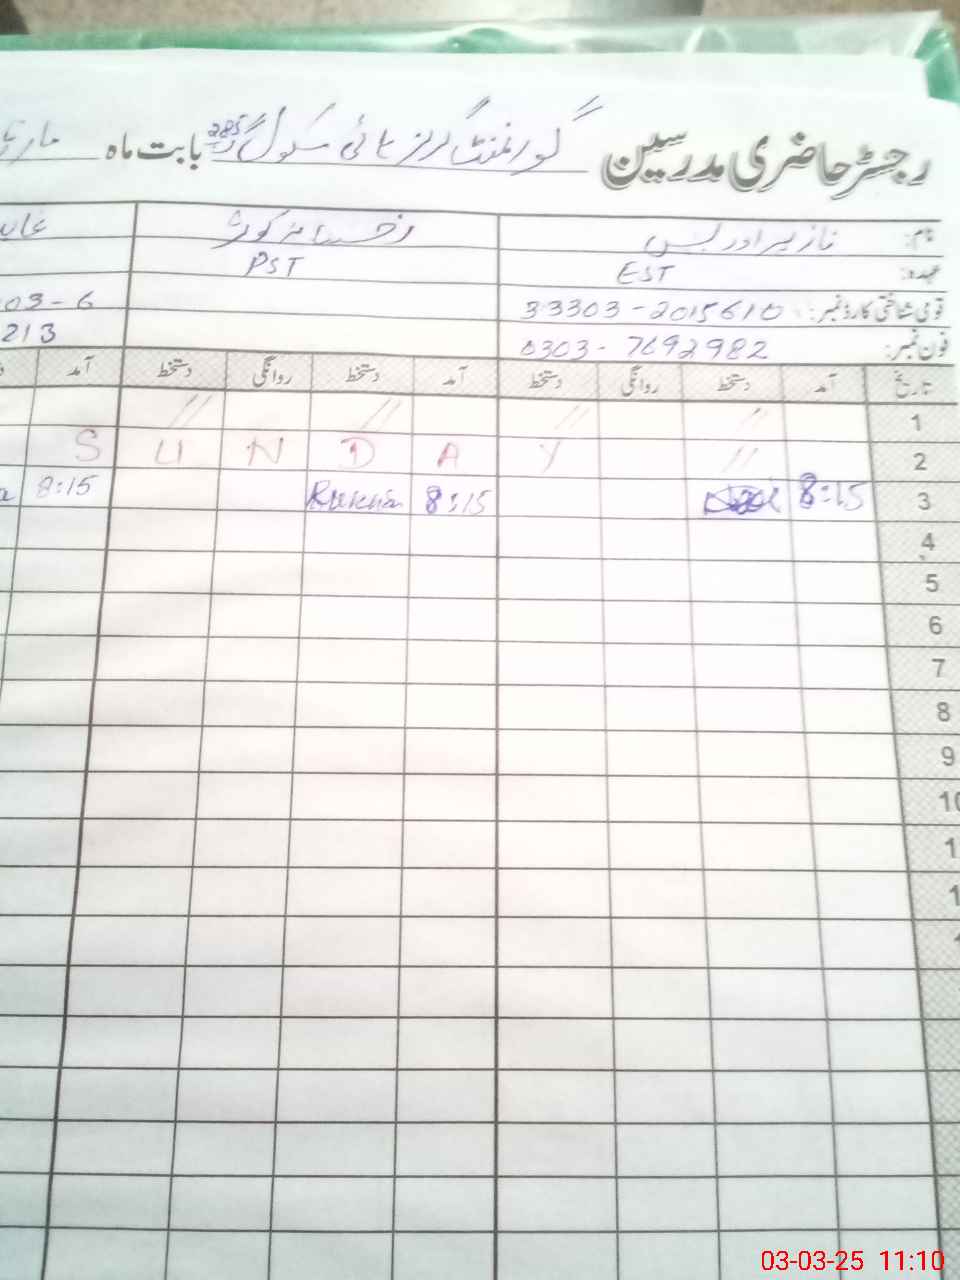 رجسٹر حاضری مدرسین گورنمنٹ گرلز ہائی سکول 285 گ ب بابت ماہ مارچ
نام: نازیہ ادریس رخسانہ کوثر
عہدہ: EST PST
قومی شناختی کارڈ نمبر: 33303-2015610 03-6
فون نمبر: 0303-7692982 213
تاریخ آمد دستخط روانگی دستخط آمد دستخط روانگی دستخط آمد
1 // // // //
2 // S U N D A Y
3 8:15 8:15 Rukhsa 8:15
4
5
6
7
8
9
10
1
1
03-03-25 11:10